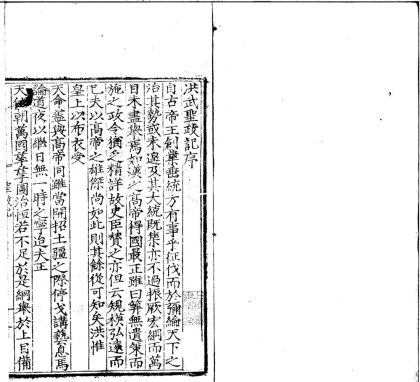 洪武聖政記序
自古帝王創業垂統方有事乎征伐而於彌綸天下之
治其勢或未遑及其大統既集亦不過振厥宏綱而萬
目未盡舉焉如漢之高帝得國最正雖曰算無遺策而
施之政令猶乏精詳故史臣贊之亦但云規模弘遠而
已夫以高帝之雄傑尚如此則其餘從可知矣洪惟
皇上以布衣受
天命蓋與高帝同雖當開招土疆之際停戈講藝息馬
論道夜以繼日無一時之寧迨夫正
天 朝萬國孳孳圖治恒若不足於是綱舉於上目備